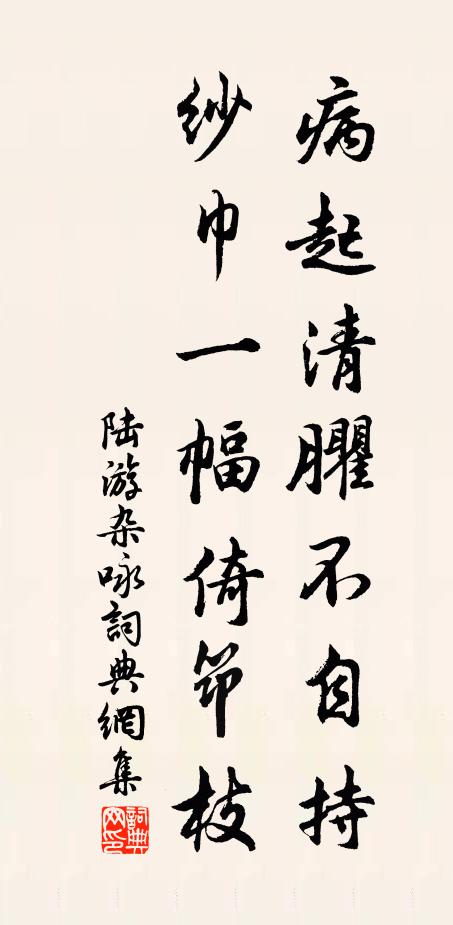 病起清臞不自持
纱巾一幅倚筇枝
陆游杂咏詞典網集
詞典
网印